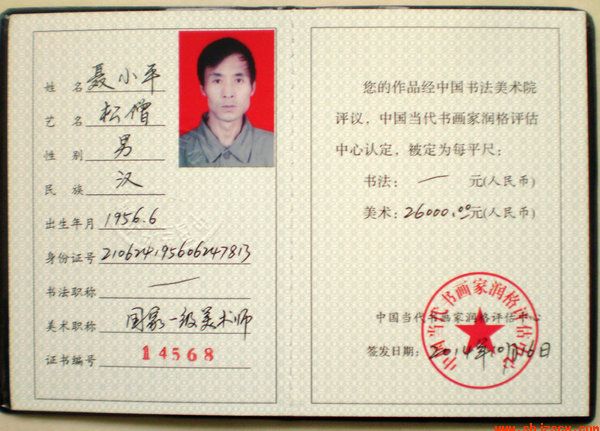 姓 名 聂小平
艺 名 松僧
性 别 男
民 族 汉
出生年月 1956.6
身份证号 210624195606247813
书法职称 一
美术职称 国家一级美术师
证书编号 14568
您的作品经中国书法美术院
评议，中国当代书画家润格评估
中心认定，被定为每平尺：
书法： 一 元(人民币)
美术： 26000.00元(人民币)
中国当代书画家润格评估中心
签发日期： 2014年10月16日
中国当代书画家润格评估中心